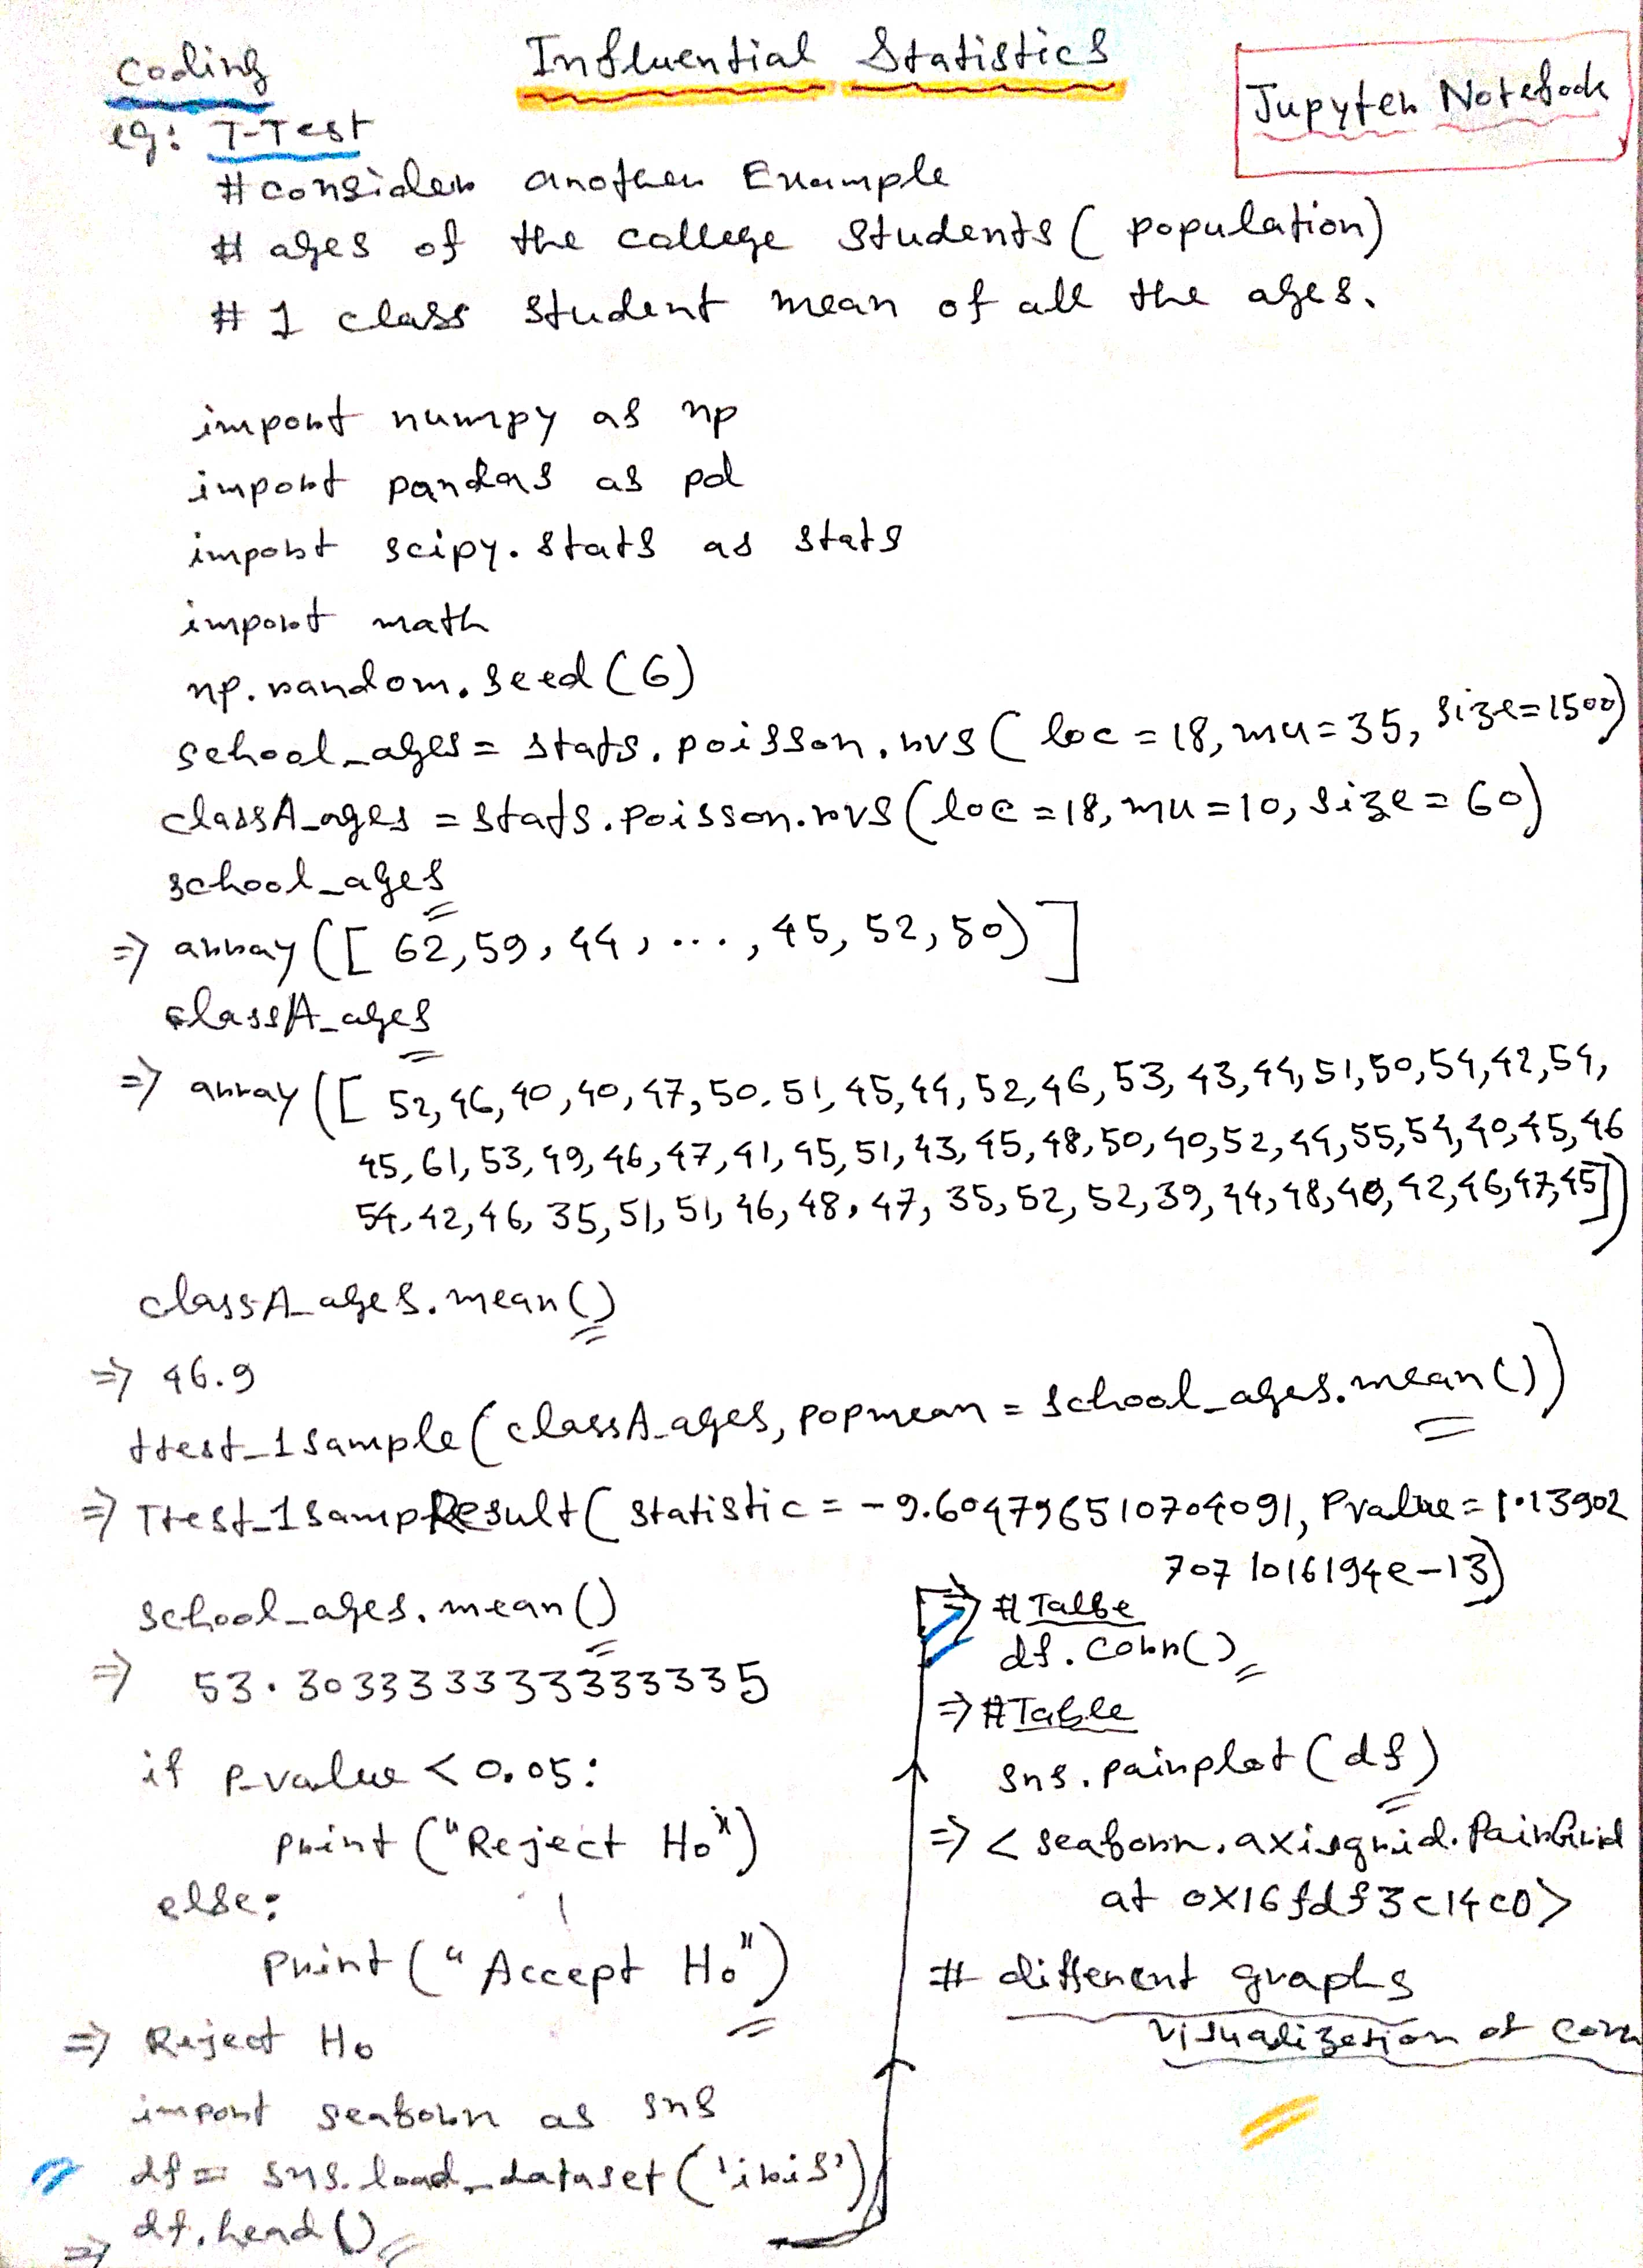 Coding
Influential Statistics
Jupyter Notebook
eg: T-Test
# consider another Example
# ages of the college Students ( population)
# 1 class Student mean of all the ages.
import numpy as np
import pandas as pd
import scipy.stats as stats
import math
np.random.seed (6)
school_ages = stats.poisson.rvs ( loc = 18, mu = 35, size = 1500)
classA_ages = stats.poisson.rvs (loc = 18, mu = 10, size = 60)
school_ages
=> array ([ 62, 59, 44, ..., 45, 52, 50)]
classA_ages
=> array ([ 52, 46, 40, 40, 47, 50. 51, 45, 44, 52, 46, 53, 43, 44, 51, 50, 54, 42, 54,
45, 61, 53, 49, 46, 47, 41, 45, 51, 43, 45, 48, 50, 40, 52, 44, 55, 54, 40, 45, 46
54, 42, 46, 35, 51, 51, 46, 48, 47, 35, 52, 52, 39, 44, 48, 40, 42, 46, 47, 45])
classA_ages.mean()
=> 46.9
ttest_1sample (classA_ages, popmean = school_ages.mean())
=> Ttest_1sampResult ( statistic = -9.604796510704091, Pvalue = 1.13902
7071016194e-13)
school_ages.mean()
=> 53.303333333333335
if p_value < 0.05:
print ("Reject Ho")
else:
print ("Accept Ho")
=> Reject Ho
import seaborn as sns
df = sns.load_dataset ('iris')
df.head()
=>
=> # Talbe
df.corr()
=> # Table
sns.pairplot (df)
=> < seaborn.axisgrid.PairGrid
at 0x16fdf3c14c0>
# different graphs
visualization of corr